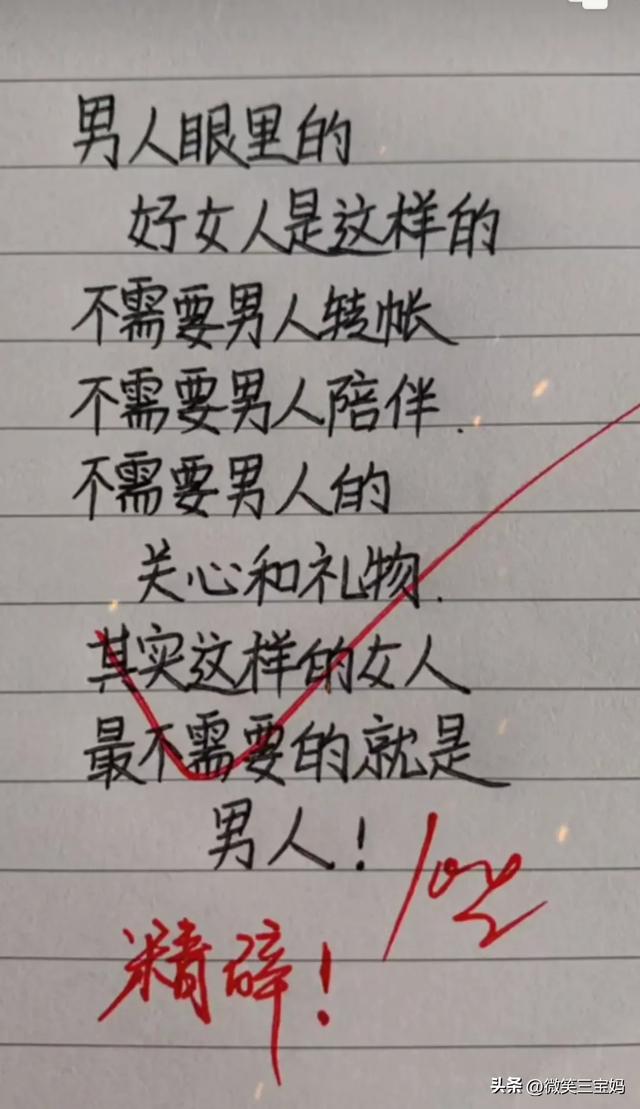 男人眼里的
好女人是这样的
不需要男人转帐
不需要男人陪伴.
不需要男人的
关心和礼物.
其实这样的女人
最不需要的就是
男人！
100
精辟！
头条 @微笑三宝妈